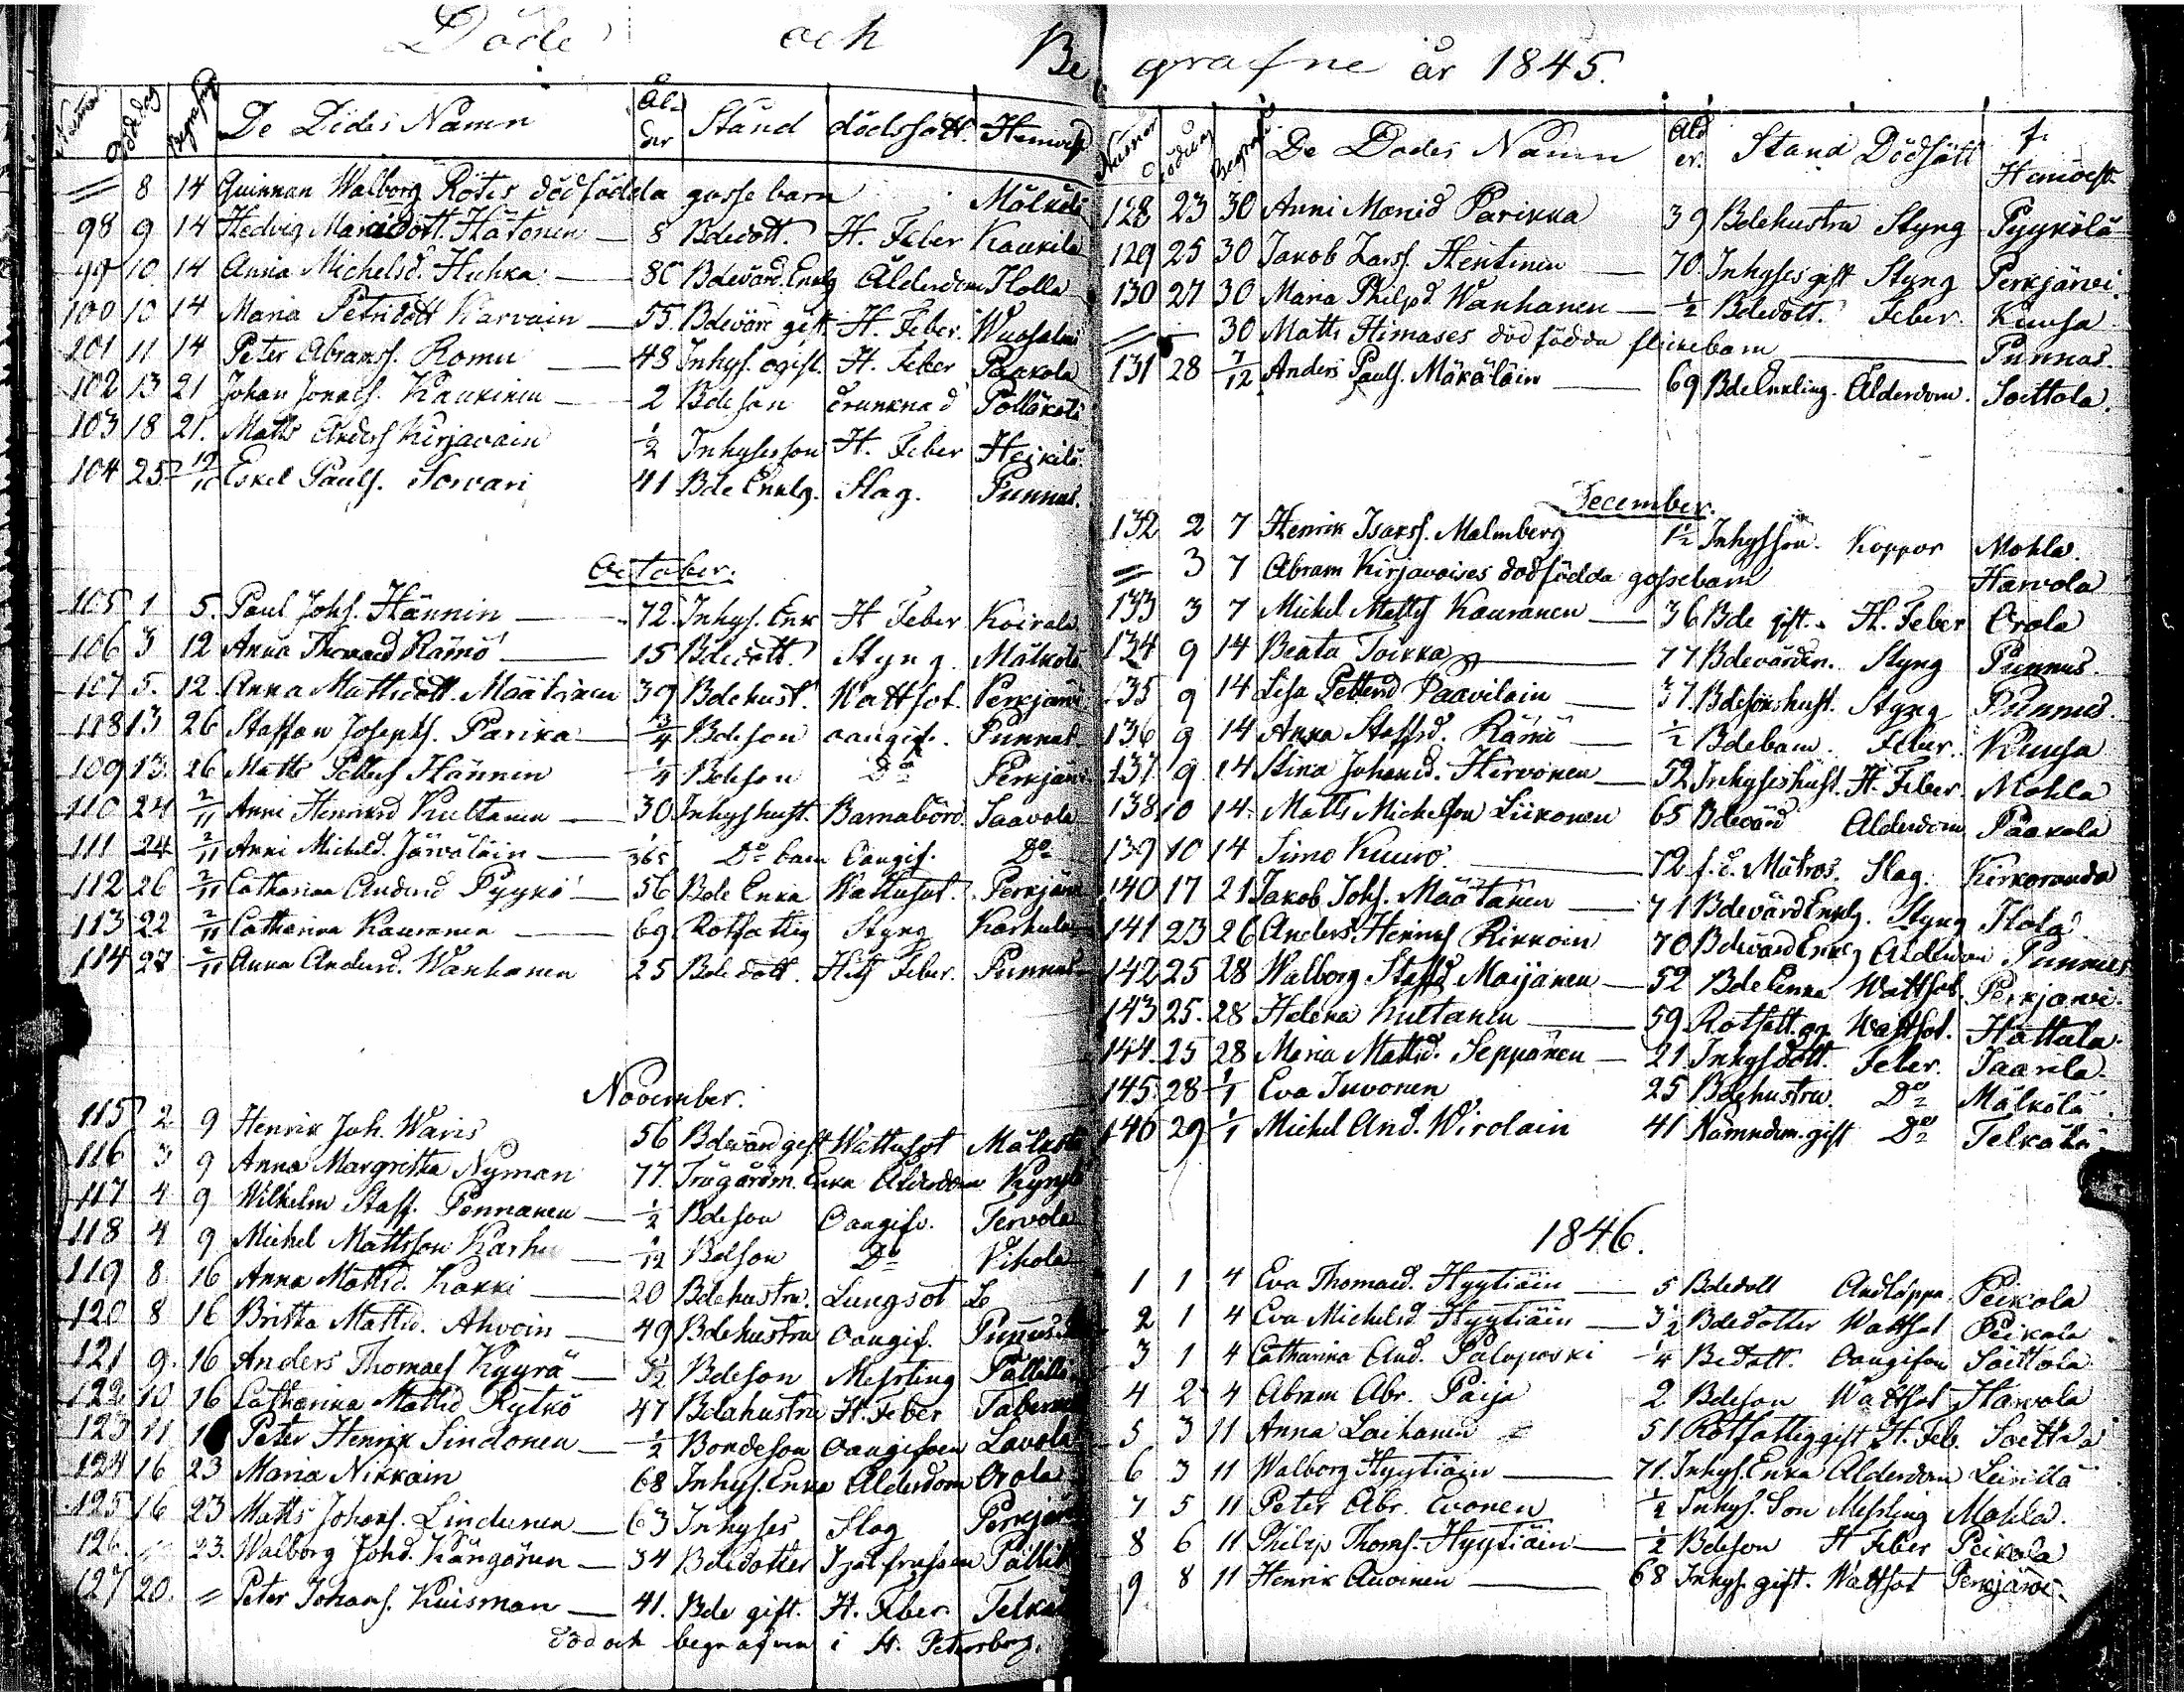 Döde och Be
Numer Döddag Begrafng De Dödes Namn Ål-der Stånd dödssätt. Hemvist
〃 8 14 Quinnan Walborg Rötes dödfödda gosse barn Mälkölä
98 9 14 Hedvig Mariädott. Hätönen — 8 Bdedott. H. Feber Kaukila
99 10 14 Anna Michelsd. Huhka — 80 Bdevärd. Enkg Ålderdom Ilola
100 10 14 Maria Petridott Karvain — 55. Bdevärd gift H. Feber. Wuosalmi
101 11 14 Peter Abramss. Romu — 48 Inhys. ogift. H. Feber Paakola
102 13 21 Johan Jonaes. Kaukinen — 2 Bdeson drunknad Pölläkälä
103 18 21. Matts Anderss Kirjavain ½ Inhysesson H. Feber Heikilä
104 25 12/10 Eskel Pauls. Torvari 41 Bde Enklg. Slag. Punnus.
October.
105 1 5. Paul Johs. Hännin — 72. Inhys. Enk H Feber Koirala
106 3 12 Anna Thomasd Rämö — 15 Bdedott. Styng. Mälkölä
107 5. 12. Anna Mattsdott. Määtänen 39 Bdehust. Wattsot. Perkjärvi
108 13 26 Staffan Josephs. Parika — ¾ Bdeson oangif. Punnus
109 13. 26 Matts Petters Hännin ¼ Bdeson Do Perkjärvi
110 24 2/11 Anni Henriksd Kultanen — 30. Inhyshust. Barnabörd. Saavola
111 24 2/11 Anni Michelsd. Järväläin — 1/365 Do barn Oangif. Do
112 26 2/11 Catharina Andersd Pyykö — 56 Bde Enka Wattusot. Perkjärvi
113 22 2/11 Catharina Kauranen — 69 Rotfattig Styng Karhula
114 27 2/11 Anna Andersd. Wanhanen 25 Bdedott. Hits Feber. Punnus
November.
115 2 9 Henrik Joh. Waris 56 Bdevärd gift Wattusot Mälkölä
116 3 9 Anna Margretha Nyman 77. Trägårdm. Enka Ålderdom Kyrylä
117 4 9 Wilhelm Staff. Pennanen — ½ Bdeson Oangifv. Tervola
118 4 9 Michel Mattsson Karhu — 1/12 Bdeson Do Vihola
119 8 16 Anna Mattsd. Kakki — 20 Bdehustru. Lungsot
120 8 16 Britta Mattsd. Ahvoin — 49 Bdehustru Oangif. Punnus
121 9. 16 Anders Thomaes Kyyrä — 3½ Bdeson Messling Pällilä
122 10 16 Catharina Mattsd Rytkö 47 Bdahustru H. Feber
123 11 Peter Henrik Sindonen — ½ Bondeson Oangifven Lavola
124 16 23 Maria Nikkain 68 Inhys. Enka Ålderdom Orola
125 16 23 Matts Johans. Lindunen — 63 Inhyses Slag Perkjärvi
126. 〃 23. Walborg Johd. Kängänen — 34 Bdedotter Ihjelfrussen Pällilä
127 20. 〃 Peter Johans. Kuisman — 41. Bde gift. H. Feber
död och begrafven i St. Petersborg.
grafne år 1845.
Numer Dödung Begraf De Dödes Namn Åld er. Stand Dödsätt Hemvist
128 23 30 Anni Monid Parikka 39 Bdehustru Styng Pyykölä
129 25 30 Jakob Larss. Hentinen — 70. Inhyses gift Styng Perkjärvi.
130 27 30 Maria Philpd. Wanhanen — ½ Bdedott. Feber. Kuusa
〃 — 30 Matts Himases dödfödda flickebarn — Punnus.
131 28 7/12 Anders Pauls. Mäkäläin — 69 Bde Enkling. Ålderdom. Soittola.
December.
132 2 7 Henrik Isakss. Malmberg 1½ Inhysson. Koppor Mohla.
〃 3 7 Abram Kirjavaises dödfödda gossebarn Harvola
133 3 7 Michel Matts Kauranen — 36 Bde gift. H. Feber Orola
134 9 14 Beata Toikka — 77 Bdevärdin. Styng Punnus.
135 9 14 Lisa Pettersd Paavilain — 37. Bdesonshust. Styng Punnus.
136 9 14 Anna Staffsd. Rämö — ½ Bdebarn. Feber. Kuusa
137. 9 14 Stina Johansd. Hirvonen — 52 Inhyseshust. H. Feber. Mohla
138 10 14. Matts Michelson Liikonen 65 Bdevärd Ålderdom Paakola
139 10 14 Simo Kuuro. — 72 f. d. Matros. Slag. Kirkoranda
140 17 21 Jakob Johs. Määtänen — 71 Bdevärd Enklg. Styng Ilola
141 23 26 Anders Henriks Rikkoin 70 Bdevärd Enklg Ålderdom Punnus
142 25 28 Walborg Staffsd Maijanen — 52 Bde Enka Wattsot. Perkjärvi.
143 25. 28 Helena Kultanen — 59 Rotfatt. gg Wattsot. Hattula.
144. 25 28 Maria Mattsd. Seppänen — 21 Inhysdott. Feber. Saarela.
145. 28 1/1 Eva Invonen 25 Bdehustru. Do Mälkölä.
146 29 1/1 Michel And. Wirolain 41 Nämndem. gift Do Telkälä.
1846.
1 1 4 Eva Thomasd. Hyytiäin — 5 Bdedott Andtäppa. Peikola
2 1 4 Eva Michelsd Hyytiäin — 3½ Bdedotter Wattsot Peikola
3 1 4 Catharina And. Paloposki ¼ Bedott. Oangifven Soittola
4 2 4 Abram Abr. Paija 2 Bdeson Wattsot Harvola
5 3 11 Anna Laihanen 51 Rotfattig gift H. Feb. Soittola
6 3 11 Walborg Hyytiäin — 71. Inhys. Enka Ålderdom Leinilä
7 5 11 Peter Abr. Evonen ½ Inhys. Son Messling Mohla.
8 6 11 Philip Thoms. Hyytiäin — ½ Bdeson H Feber Peikola
9 8 11 Henrik Auvinen — 68 Inhys. gift. Wattsot Perkjärvi.